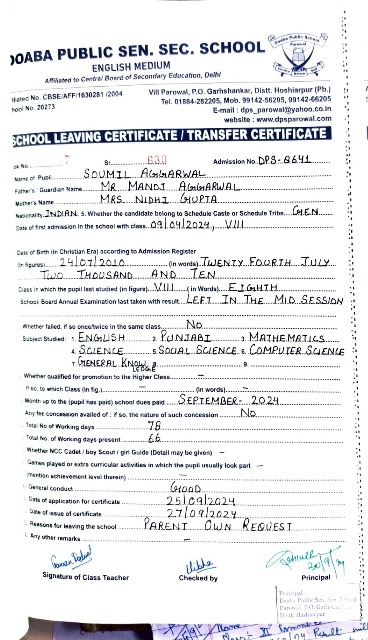 DOABA PUBLIC SEN. SEC. SCHOOL
ENGLISH MEDIUM
Affiliated to Central Board of Secondary Education, Delhi
Doaba Public School
Parowal
iliated No. CBSE/AFF/1630281 /2004
hool No. 20273
Vill Parowal, P.O. Garhshankar, Distt. Hoshiarpur (Pb.)
Tel. 01884-282205, Mob. 99142-56205, 99142-66205
E-mail : dps_parowal@yahoo.co.in
website : www.dpsparowal.com
SCHOOL LEAVING CERTIFICATE / TRANSFER CERTIFICATE
ok No. 7 Sr. 630 Admission No. DPS-8641
Name of Pupil SOUMIL AGGARWAL
Father's / Guardian Name MR. MANOJ AGGARWAL
Mother's Name MRS. NIDHI GUPTA
Nationality INDIAN 5. Whether the candidate belong to Schedule Caste or Schedule Tribe GEN
Date of first admission in the school with class 09/04/2024, VIII
Date of Birth (in Christian Era) according to Admission Register
(In figures) 24/07/2010 (in words) TWENTY FOURTH JULY
TWO THOUSAND AND TEN
Class in which the pupil last studied (in figure) VIII (in Words) EIGHTH
School Board Annual Examination last taken with result LEFT IN THE MID SESSION
Whether failed, if so once/twice in the same class No
Subject Studied: 1. ENGLISH 2. PUNJABI 3. MATHEMATICS
4. SCIENCE 5. SOCIAL SCIENCE 6. COMPUTER SCIENCE
7. GENERAL KNOWLEDGE 8. 9.
Whether qualified for promotion to the Higher Class –
If so, to which Class (in fig.) – (in words) –
Month up to the (pupil has paid) school dues paid SEPTEMBER- 2024
Any fee concession availed of : if so, the nature of such concession No
Total No. of Working days 78
Total No. of Working days present 66
Whether NCC Cadet / boy Scout / girl Guide (Detail may be given) –
Games played or extra curricular activities in which the pupil usually look part –
(mention achievement level therein) –
General conduct GOOD
Date of application for certificate 25/09/2024
Date of issue of certificate 27/09/2024
Reasons for leaving the school PARENT OWN REQUEST
Any other remarks –
Signature of Class Teacher Checked by Principal
Principal
Doaba Public Sen. Sec. School
Parowal, P.O. Garhshankar
Distt. Hoshiarpur